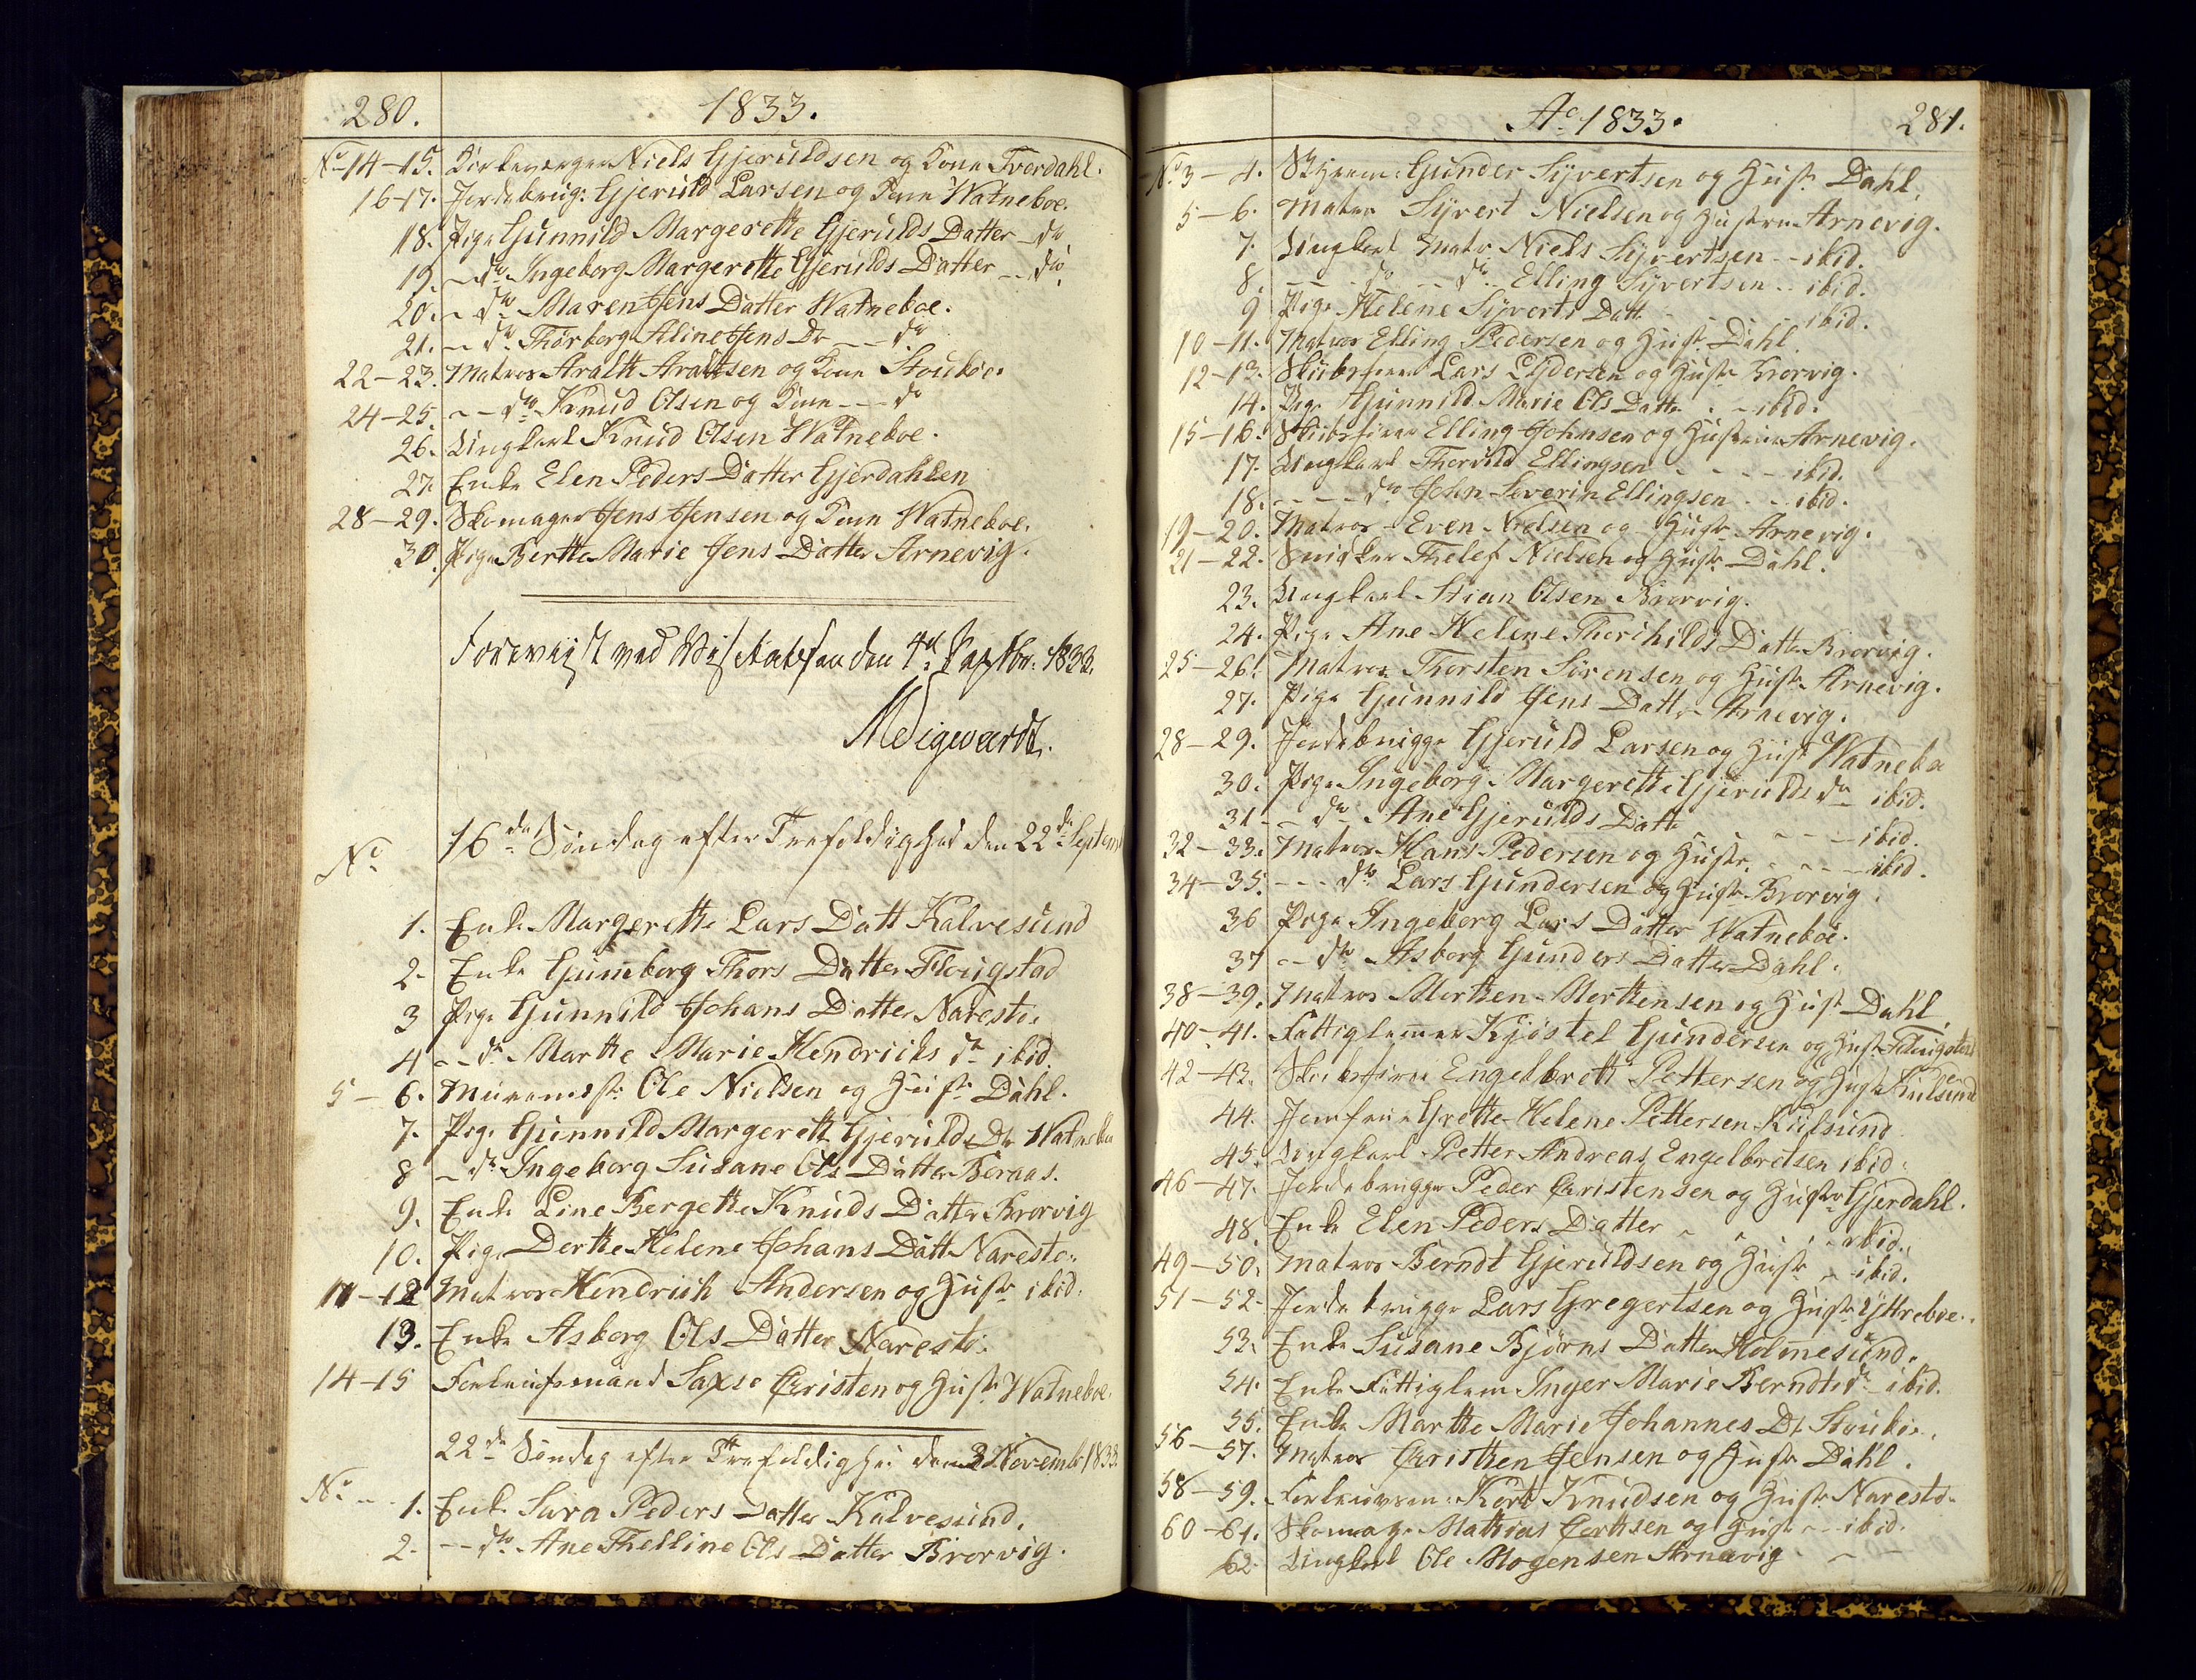 280. 1833.
No 14-15. Kirkeverger Niels Gjeruldsen og Kone Tverdahl.
16-17. Jordebrug: Gjeruld Larsen og Kone Watneboe.
18. Pige Gunnild Margerethe Gjerulds Datter do
19. - do Ingeborg Margerethe Gjerulds Datter -- do.
20. - do Maren Jens Datter Watneboe.
21. - do Thorborg Aline Jens Dr -- do
22-23. Matros Aralth Araltsen og Kone Stoueboe.
24-25. -- do Knud Olsen og Kone --- do
26. Ungkarl Knud Olsen Watneboe.
27. Enke Elen Peders Datter Gjerdahlen
28-29. Skomager Jens Jensen og Kone Watneboe.
30. Pige Berthe Marie Jens Datter Arnevig.
Foreviist ved Visitatsen den 4de Septbr: 1833.
No 16de Søndag efter Trefoldighed den 22de Septem
1. Enke Margerethe Lars Datt Kalvesund
2. Enke Gunneborg Thors Datter Flougstad
3 Pige Gunnild Johans Datter Naresto.
4 -- do Marthe Marie Hendrichs dr ibid.
5-6. Muurmestr: Ole Nielsen og Hustr Dahl.
7. Pige Gunnild Margereth Gjerulds Dr Watneboe
8 - do Ingeborg Susane Ols Datter Beraas.
9. Enke Line Bergethe Knuds Datter Brorvig
10. Pige Dorthe Helene Johans Datt Naresto.
11-12 Matros Hendrich Andersen og Hustr ibid.
13. Enke Asborg Ols Datter Naresto.
14-15 Forliigsmand Saxse Christen og Hustr Watneboe.
22de Søndag efter Trefoldighed den 3 Novembr 1833
No -- 1. Enke Sara Peders Datter Kalvesund.
2. -- do Ane Thelline Ols Datter Brorvig.
Ao 1833. 281.
No 3-4. Gunder Syvertsen og Hustr Dahl.
5-6. Matros Syvert Nielsen og Hustrue Arnevig.
7. Ungkarl Matr. Niels Syvertsen -- ibid.
8. -- do -- do Elling Syvertsen -- ibid.
9 Pige Helene Syverts Datt - - - ibid.
10-11. Matros Elling Pedersen og Hustr Dahl.
12-13. Skibsfører Lars Lydersen og Hustr Brorvig.
14. Pige Gunnild Marie Ols Datter - - ibid.
15-16. Skibsfører Elling Johnsen og Hustrue Arnevig.
17. Ungkarl Thorvild Ellingsen - - - ibid.
18. ---- do John Severin Ellingsen - - ibid.
19-20. Matros Even Nielsen og Hustr Arnevig.
21-22. Snidker Thelef Nielsen og Hustr Dahl.
23. Ungkarl Stian Olsen Brorvig.
24. Pige Ane Helene Thorchilds Datter Brorvig.
25-26. Matros Thorsten Sørensen og Hustr Arnevig.
27. Pige Gunnild Jens Datter Arnevig.
28-29. Jordebrugge Gjeruld Larsen og Hustr Watneboe
30. Pige Ingeborg Margerethe Gjerulds dr ibid.
31 -- do Ane Gjerulds Datt - - - ibid.
32-33. Matros Hans Pedersen og Hustr - - - ibid.
34-35. --- do Lars Gundersen og Hustr Brorvig.
36 Pige Ingeborg Lars Datter Watneboe.
37 -- do Asborg Gunders Datter Dahl.
38-39. Matros Morthen Morthensen og Hustr Dahl.
40-41. Fattiglemmer Kjøstel Gundersen og Hustr Flougstad
42-43. Skibsfører Engelbrett Pettersen og Hustr Kiilsund
44. Jomfrue Grethe Helene Pettersen Kiilsund
45. Ungkarl Petter Andreas Engelbretsen ibid.
46-47. Jordebrugge Peder Christensen og Hustr Gjerdahl.
48. Enke Elen Peders Datter - - - - ibid.
49-50. Matros Berndt Gjeruldsen og Hustr - ibid.
51-52- Jordebrugge Lars Gregertsen og Hustr Yttreboe.
53. Enke Susane Bjørns Datter Holmesund.
54. Enke Fattiglem Inger Marie Berndts dr ibid.
55. Enke Marthe Marie Johannes Dr Stoueboe.
56-57. Matros Christen Jensen og Hustr Dahl.
58-59. Kort Knudsen og Hustr Naresto.
60-61. Skomager Mathias Corthsen og Hustr -- ibid.
62. Ungkarl Ole Mogensen Arnevig - -